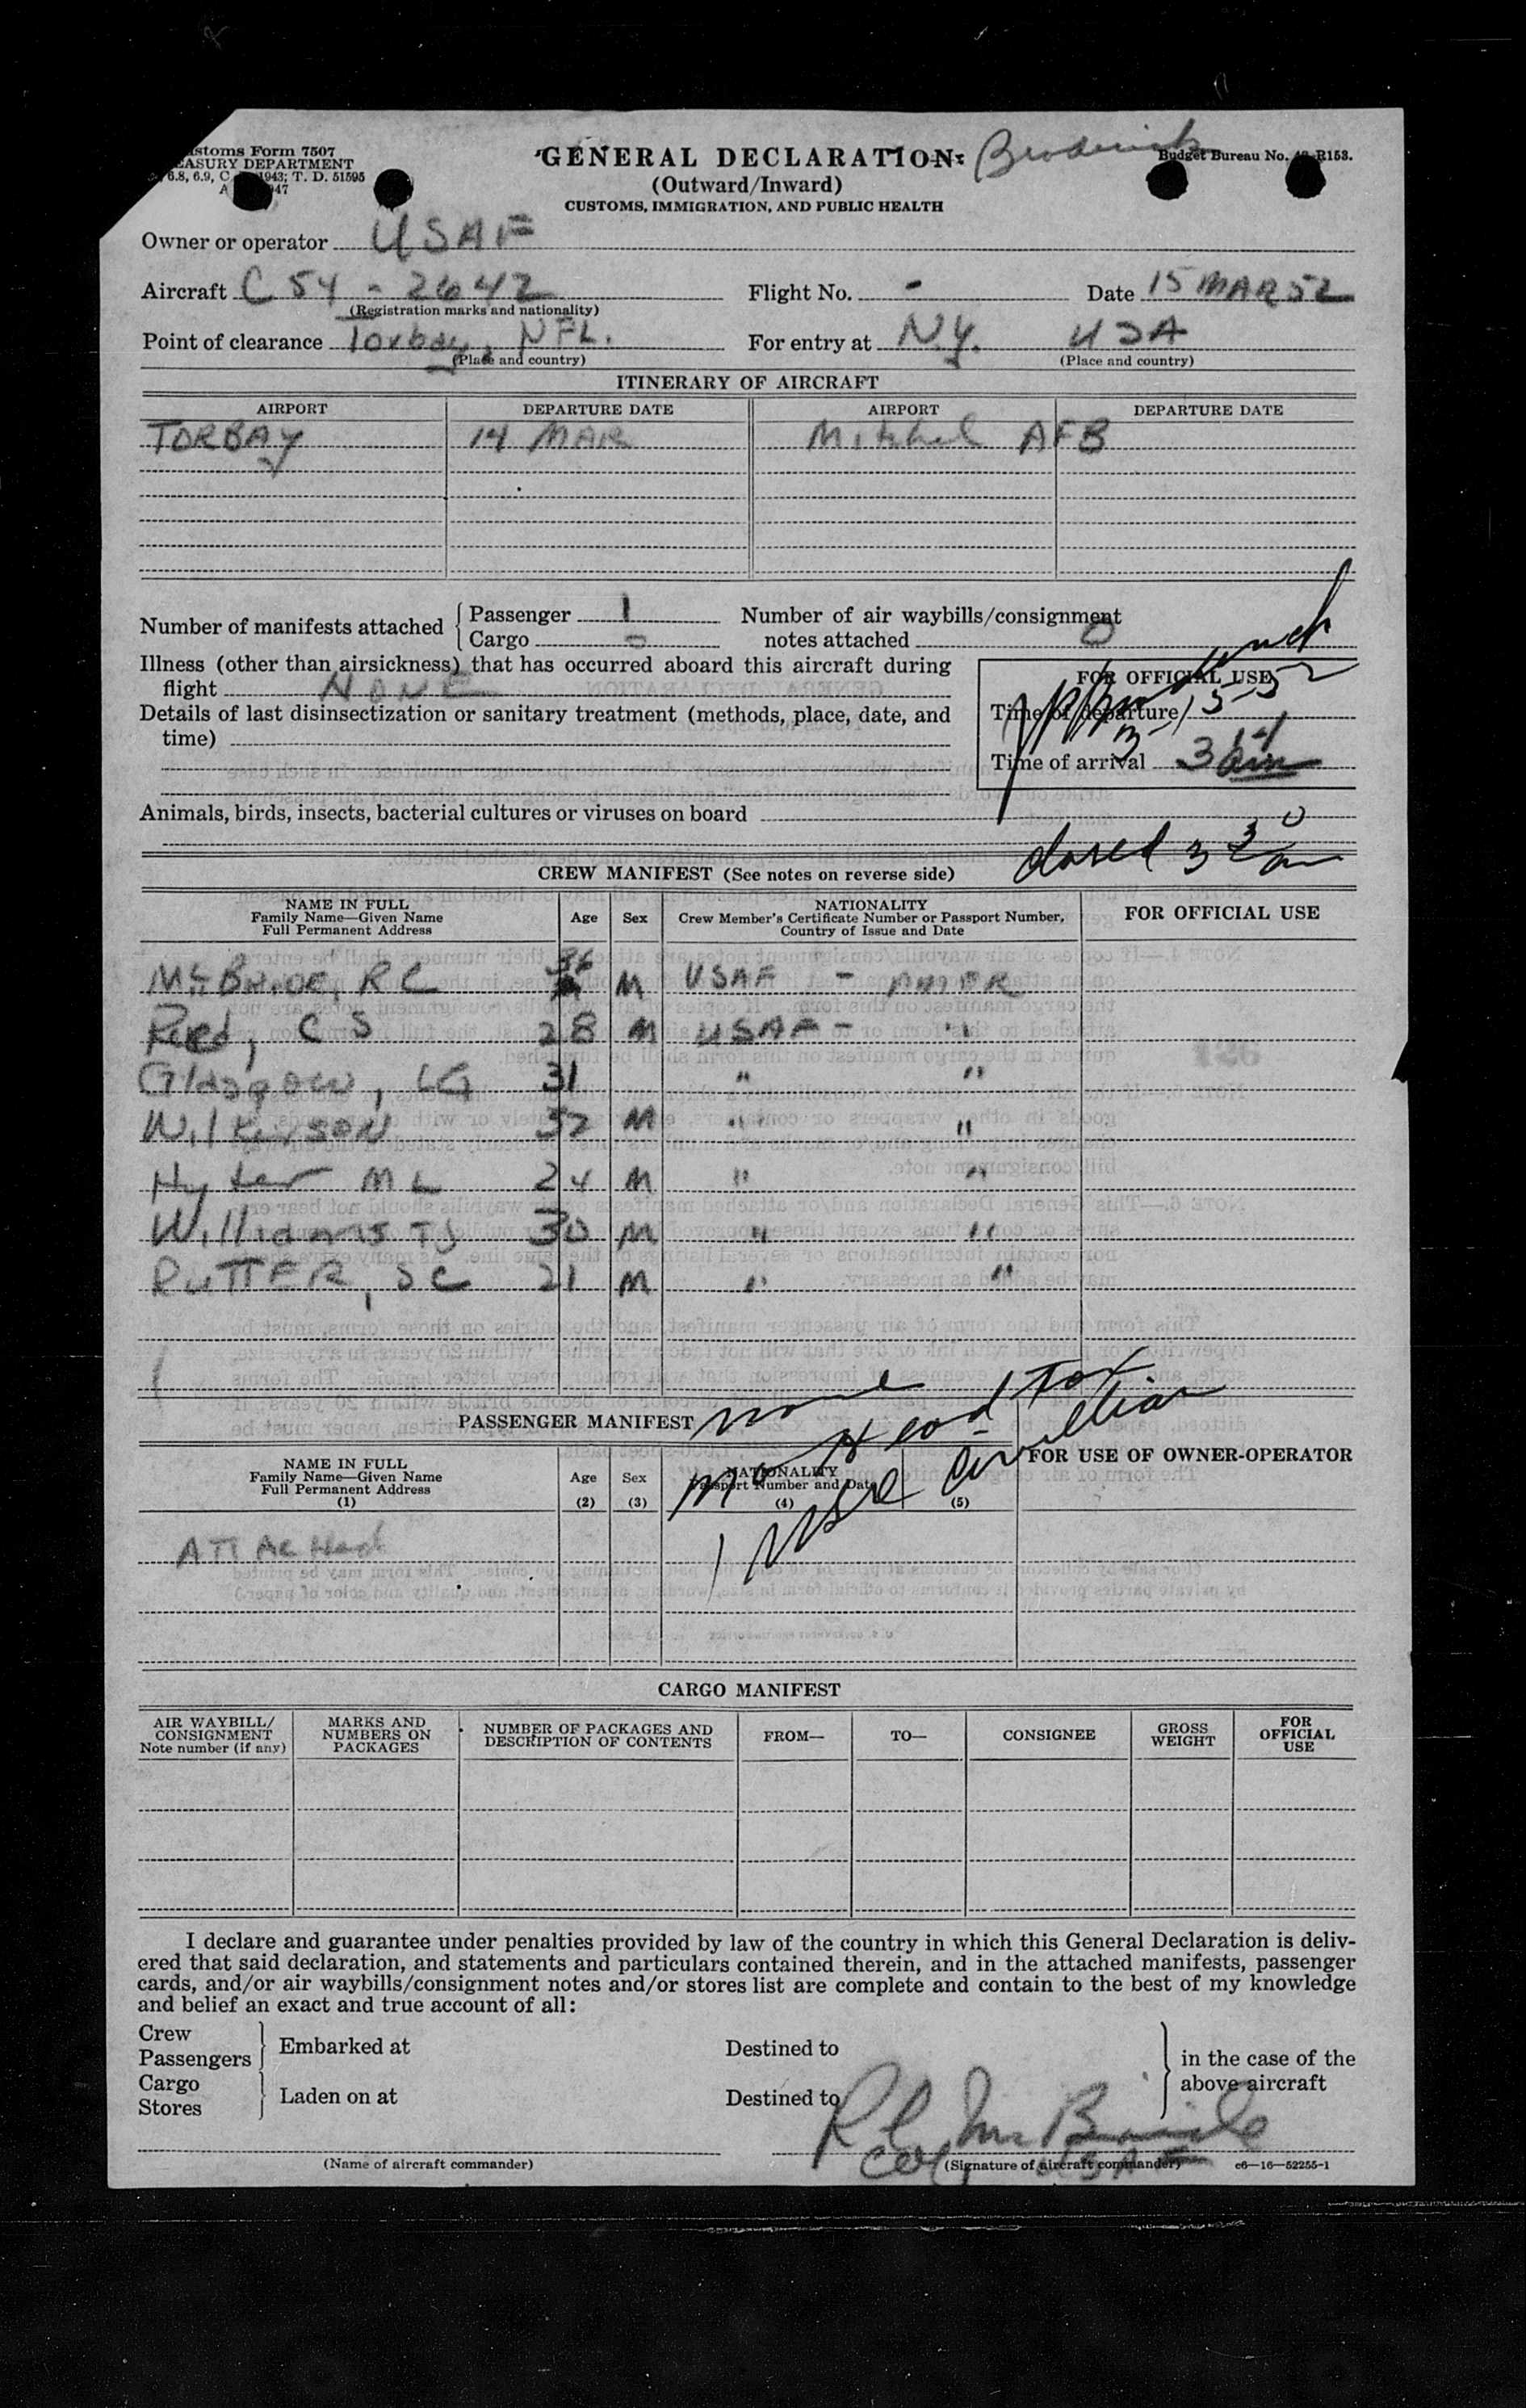 Customs Form 7507
TREASURY DEPARTMENT
6.8, 6.9, C. 1943; T. D. 51595
GENERAL DECLARATION
Broderick
Budget Bureau No. R153.
(Outward/Inward)
CUSTOMS, IMMIGRATION, AND PUBLIC HEALTH
Owner or operator USAF
Aircraft C 54 - 2642 Flight No. - Date 15 MAR 52
(Registration marks and nationality)
Point of clearance Torbay, NFL. For entry at N.Y. USA
(Place and country) (Place and country)
ITINERARY OF AIRCRAFT
AIRPORT DEPARTURE DATE AIRPORT DEPARTURE DATE
TORBAY 14 MAR Mitchel AFB
Number of manifests attached Passenger 1 Number of air waybills/consignment
Cargo 0 notes attached 0
Illness (other than airsickness) that has occurred aboard this aircraft during
flight NONE
Details of last disinsectization or sanitary treatment (methods, place, date, and
time)
FOR OFFICIAL USE
Time of departure
3-15-52
Time of arrival 3 14 am
Animals, birds, insects, bacterial cultures or viruses on board
closed 3 30 am
CREW MANIFEST (See notes on reverse side)
NAME IN FULL
Family Name—Given Name
Full Permanent Address
Age Sex
NATIONALITY
Crew Member's Certificate Number or Passport Number,
Country of Issue and Date
FOR OFFICIAL USE
McBride, R C 36 M USAF - AMER
Reed, C S 28 M USAF - "
Glasgow, LG 31 " "
Wilkinson 32 M " "
Hyter M L 24 M " "
Williams TJ 30 M " "
RUTTER, SC 21 M " "
PASSENGER MANIFEST
none
no Head Tax
1 male civilian
NAME IN FULL
Family Name—Given Name
Full Permanent Address
(1)
Age
(2)
Sex
(3)
NATIONALITY
Passport Number and Date
(4) (5)
FOR USE OF OWNER-OPERATOR
ATTACHed
CARGO MANIFEST
AIR WAYBILL/
CONSIGNMENT
Note number (if any)
MARKS AND
NUMBERS ON
PACKAGES
NUMBER OF PACKAGES AND
DESCRIPTION OF CONTENTS
FROM—
TO—
CONSIGNEE
GROSS
WEIGHT
FOR
OFFICIAL
USE
I declare and guarantee under penalties provided by law of the country in which this General Declaration is deliv-
ered that said declaration, and statements and particulars contained therein, and in the attached manifests, passenger
cards, and/or air waybills/consignment notes and/or stores list are complete and contain to the best of my knowledge
and belief an exact and true account of all:
Crew
Passengers Embarked at Destined to in the case of the
Cargo above aircraft
Stores Laden on at Destined to
R C McBride
Col, USAF
(Name of aircraft commander) (Signature of aircraft commander) c6—16—52255-1